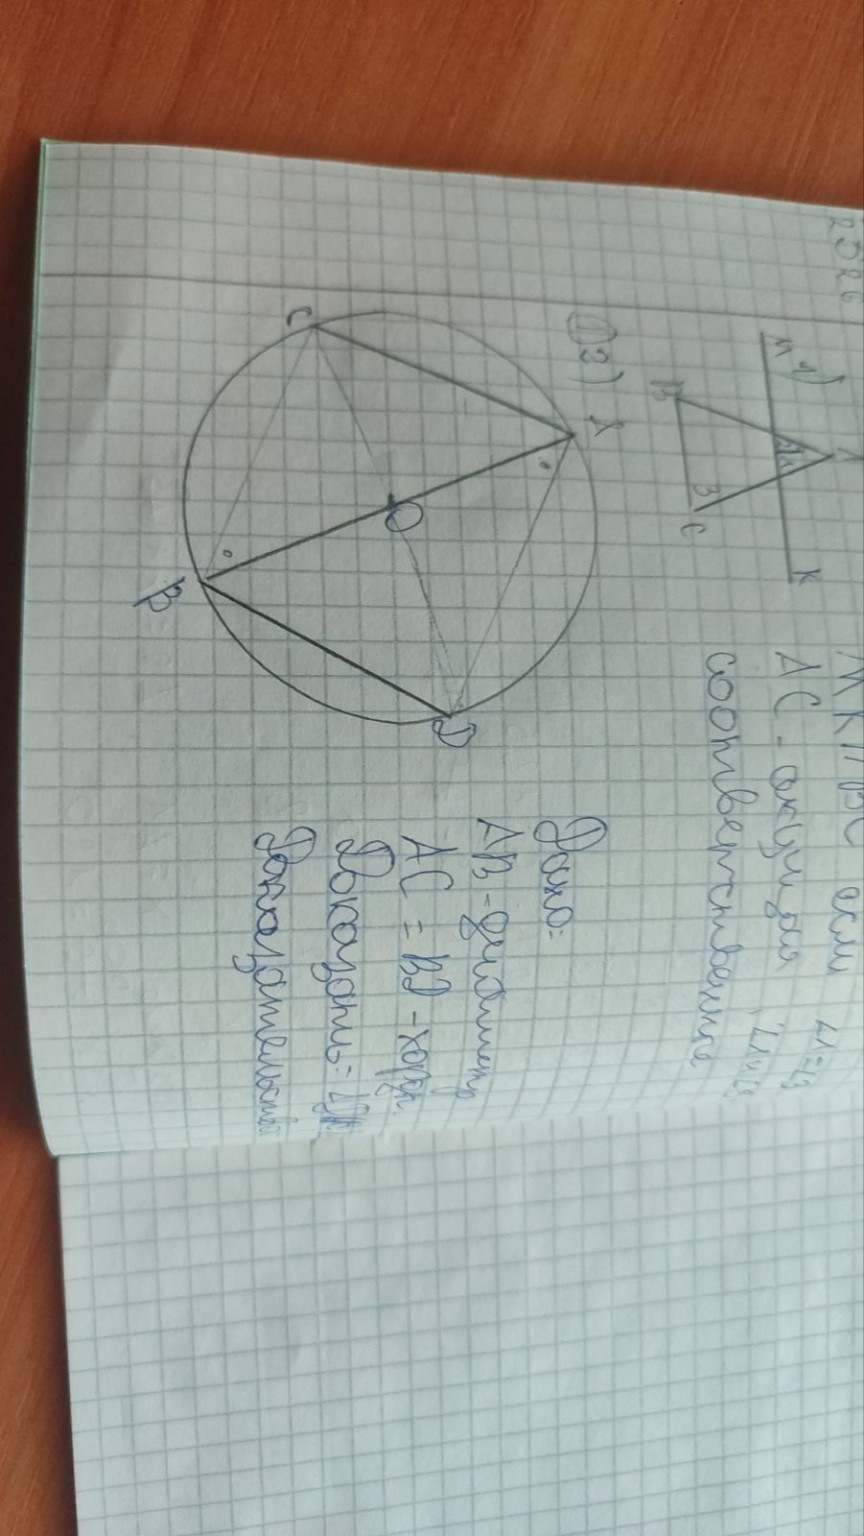 1)
M
K
B
C
3
MK || BC если
AC - секущая,
соответственные
3)
A
C
O
B
D
Дано:
AB - диаметр
AC = BD - хорды
Доказать:
Доказательство